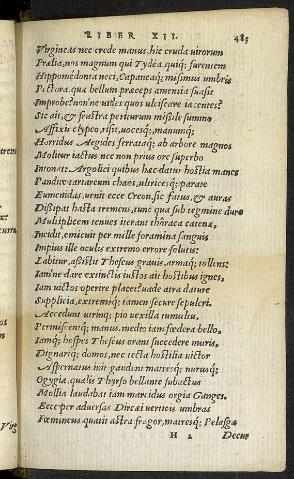 LIBER XII. 485
Virgineas nec crede manus, hic cruda uirorum
Prælia, nos magnum qui Tydea, quiq; furentem
Hippomedonta neci, Capaneaq; misimus umbris
Pectora, quæ bellum præceps amentia suasit
Improbe? non'ne uides quos ulciscare iacentes?
Sic ait, & frustra periturum missile summo
Affixit clypeo, risit, uocesq;, manumq;
Horridus Aegides ferrataq; ab arbore magnos
Molitur iactus nec non prius ore superbo
Intonat: Argolici quibus hæc datur hostia manes
Pandite tartareum chaos, ultricesq; parate
Eumenidas, uenit ecce Creon, sic fatus, & auras
Dissipat hasta tremens, tunc qua sub tegmine duro
Multiplicem tenues iterant thoraca catenæ,
Incidit, emicuit per mille foramina sanguis
Impius ille oculis extremo errore solutis:
Labitur, assistit Theseus grauis, armaq; tollens:
Iam'ne dare extinctis iustos ait hostibus ignes,
Iam uictos operire placet? uade atra dature
Supplicia, extremiq; tamen secure sepulcri.
Accedunt utrinq; pio uexilla tumultu,
Permiscentq; manus, medio iam fœdera bello,
Iamq; hospes Theseus orant succedere muris,
Dignariq; domos, nec tecta hostilia uictor
Aspernatus init gaudent matresq; nurusq;
Ogygiæ, qualis Thyrso bellante subactus
Mollia laudabat iam marcidus orgia Ganges.
Ecce per aduersas Dircæi uerticis umbras
Fœmineus quatit astra fragor, matresq; Pelasgæ
H 2 Decur